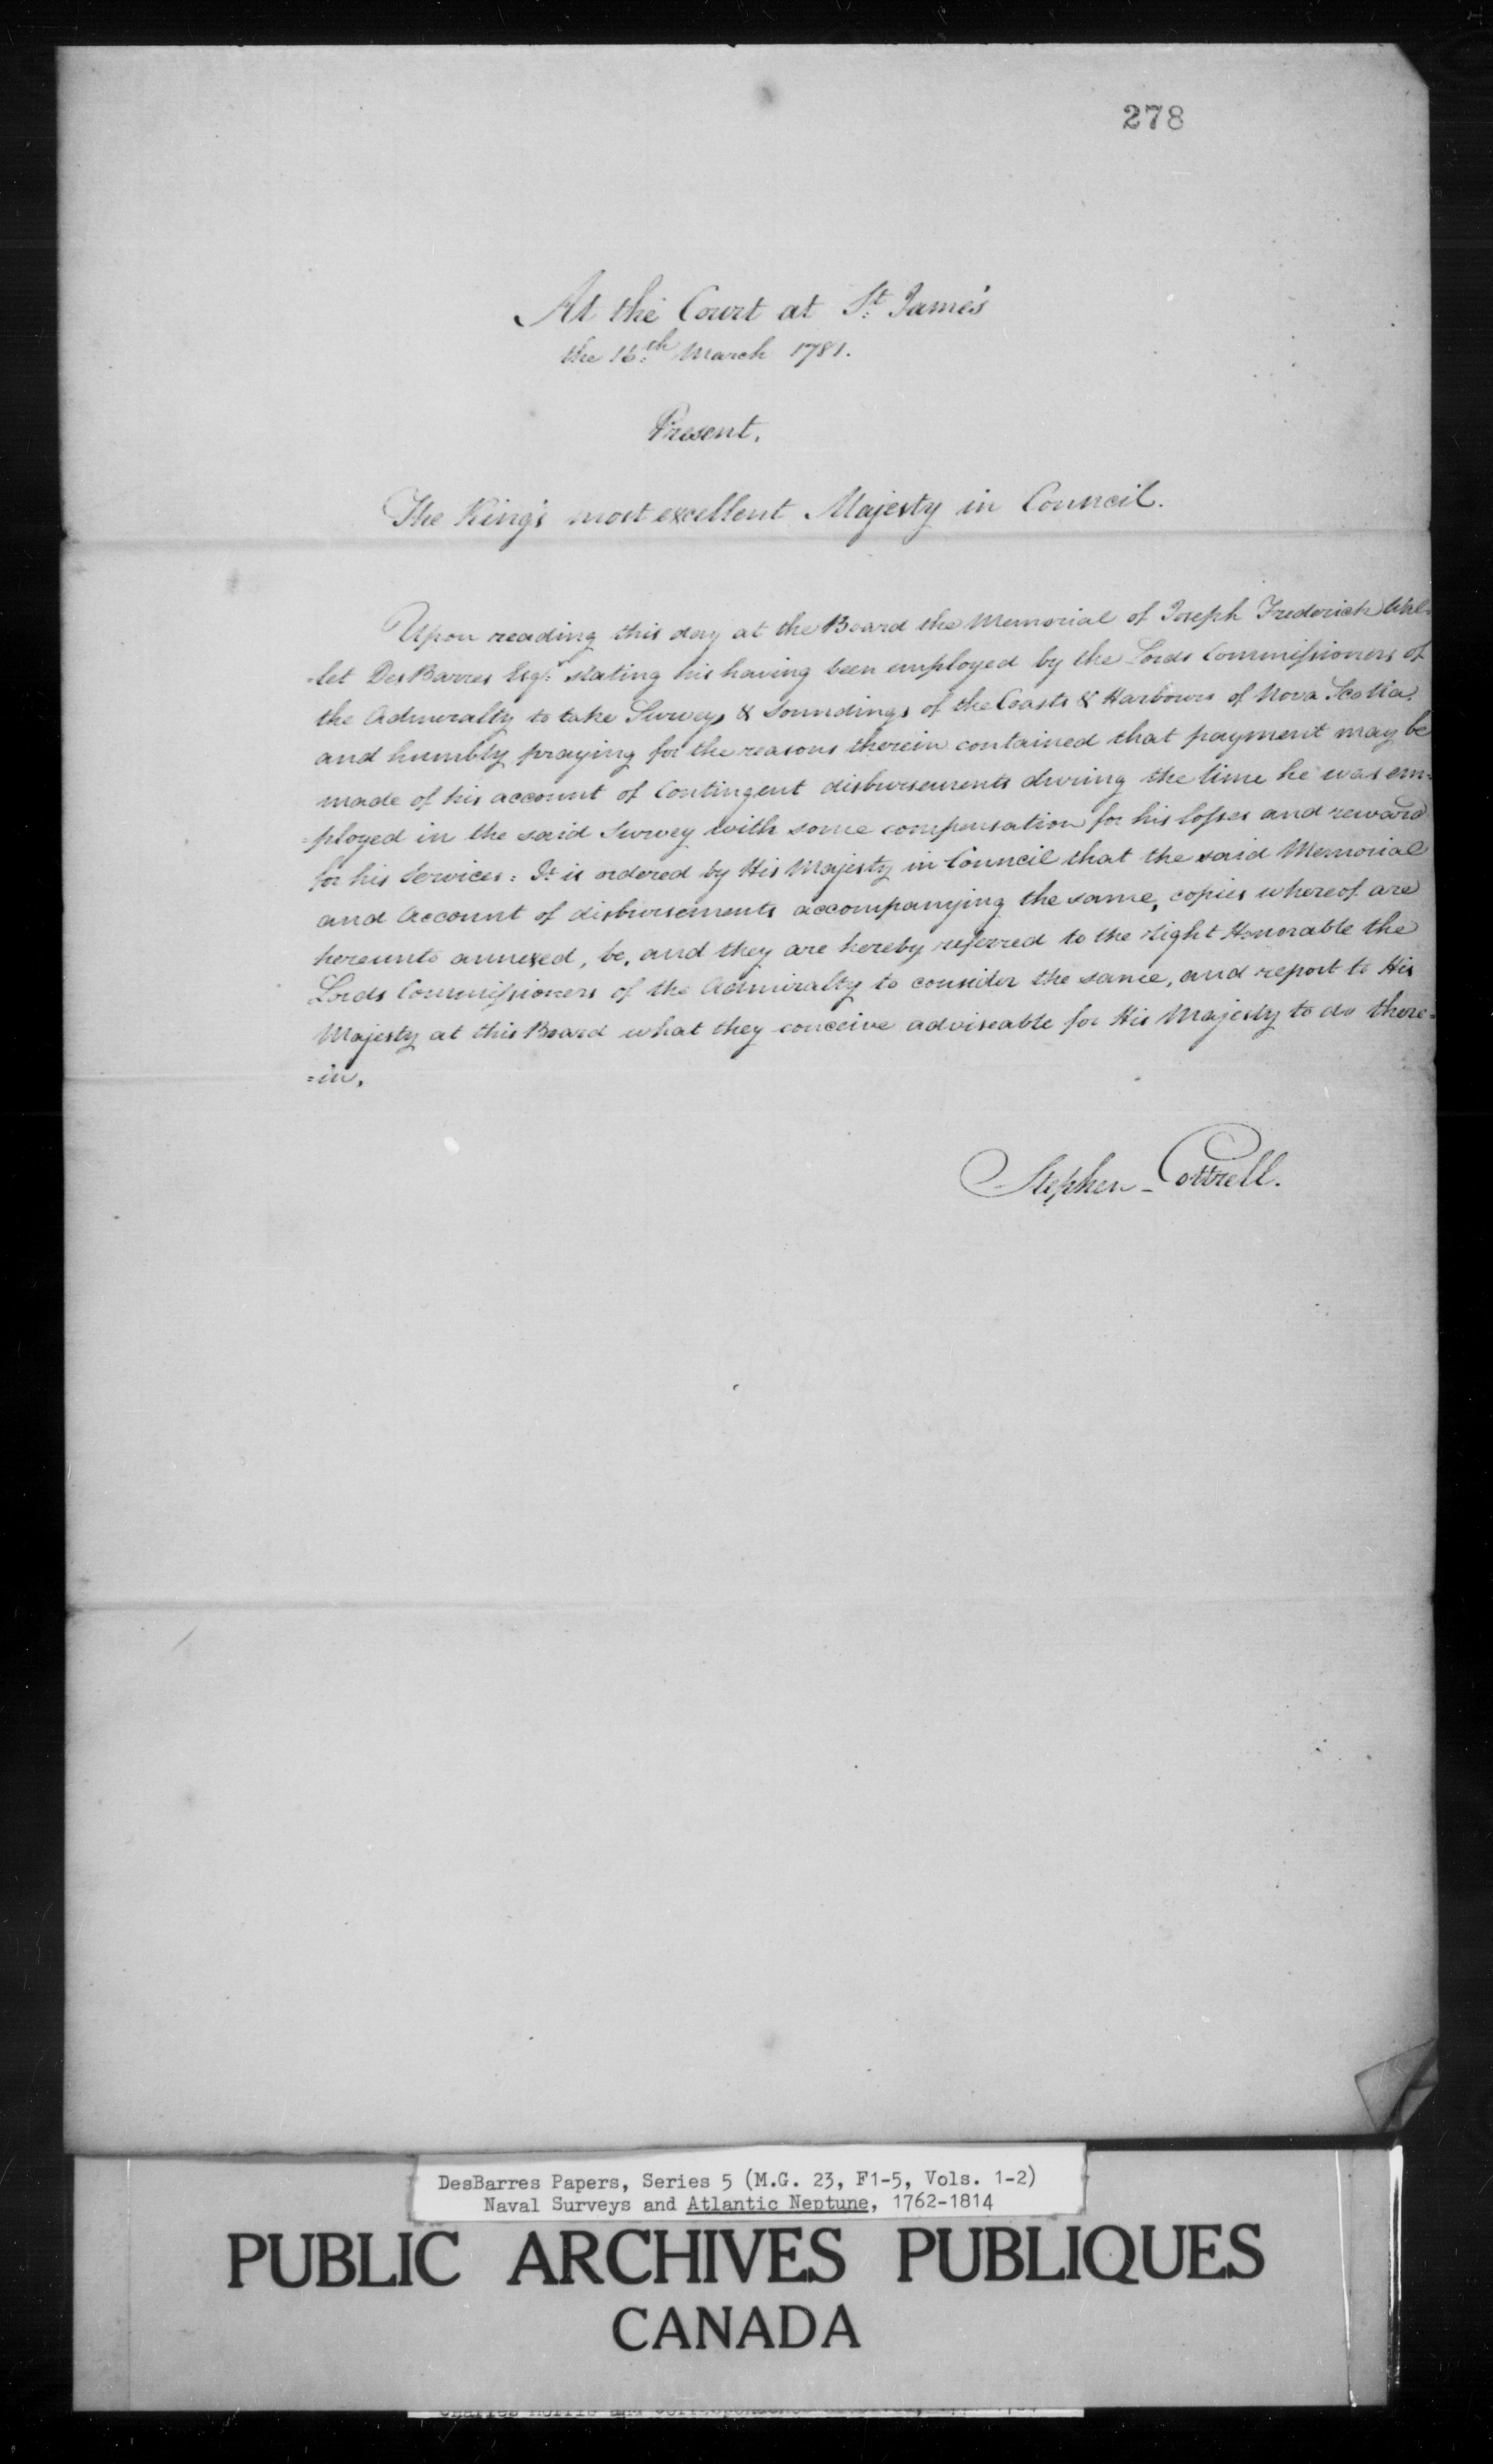 278
At the Court at St. James's
the 16th. March 1781.
Present,
The King's most excellent Majesty in Council.
Upon reading this day at the Board the Memorial of Joseph Frederick Wal=
=let DesBarres Esqr. stating his having been employed by the Lords Commissioners of
the Admiralty to take Surveys & Soundings of the Coasts & Harbours of Nova Scotia,
and humbly praying for the reasons therein contained that payment may be
made of his account of Contingent disbursements during the time he was em=
=ployed in the said Survey with some compensation for his losses and reward
for his Services: It is ordered by His Majesty in Council that the said Memorial
and Account of disbursements accompanying the same, copies whereof are
hereunto annexed, be, and they are hereby referred to the Right Honorable the
Lords Commissioners of the Admiralty to consider the same, and report to His
Majesty at this Board what they conceive adviseable for His Majesty to do there=
=in.
Stephen Cottrell.
DesBarres Papers, Series 5 (M.G. 23, F1-5, Vols. 1-2)
Naval Surveys and Atlantic Neptune, 1762-1814
PUBLIC ARCHIVES PUBLIQUES
CANADA